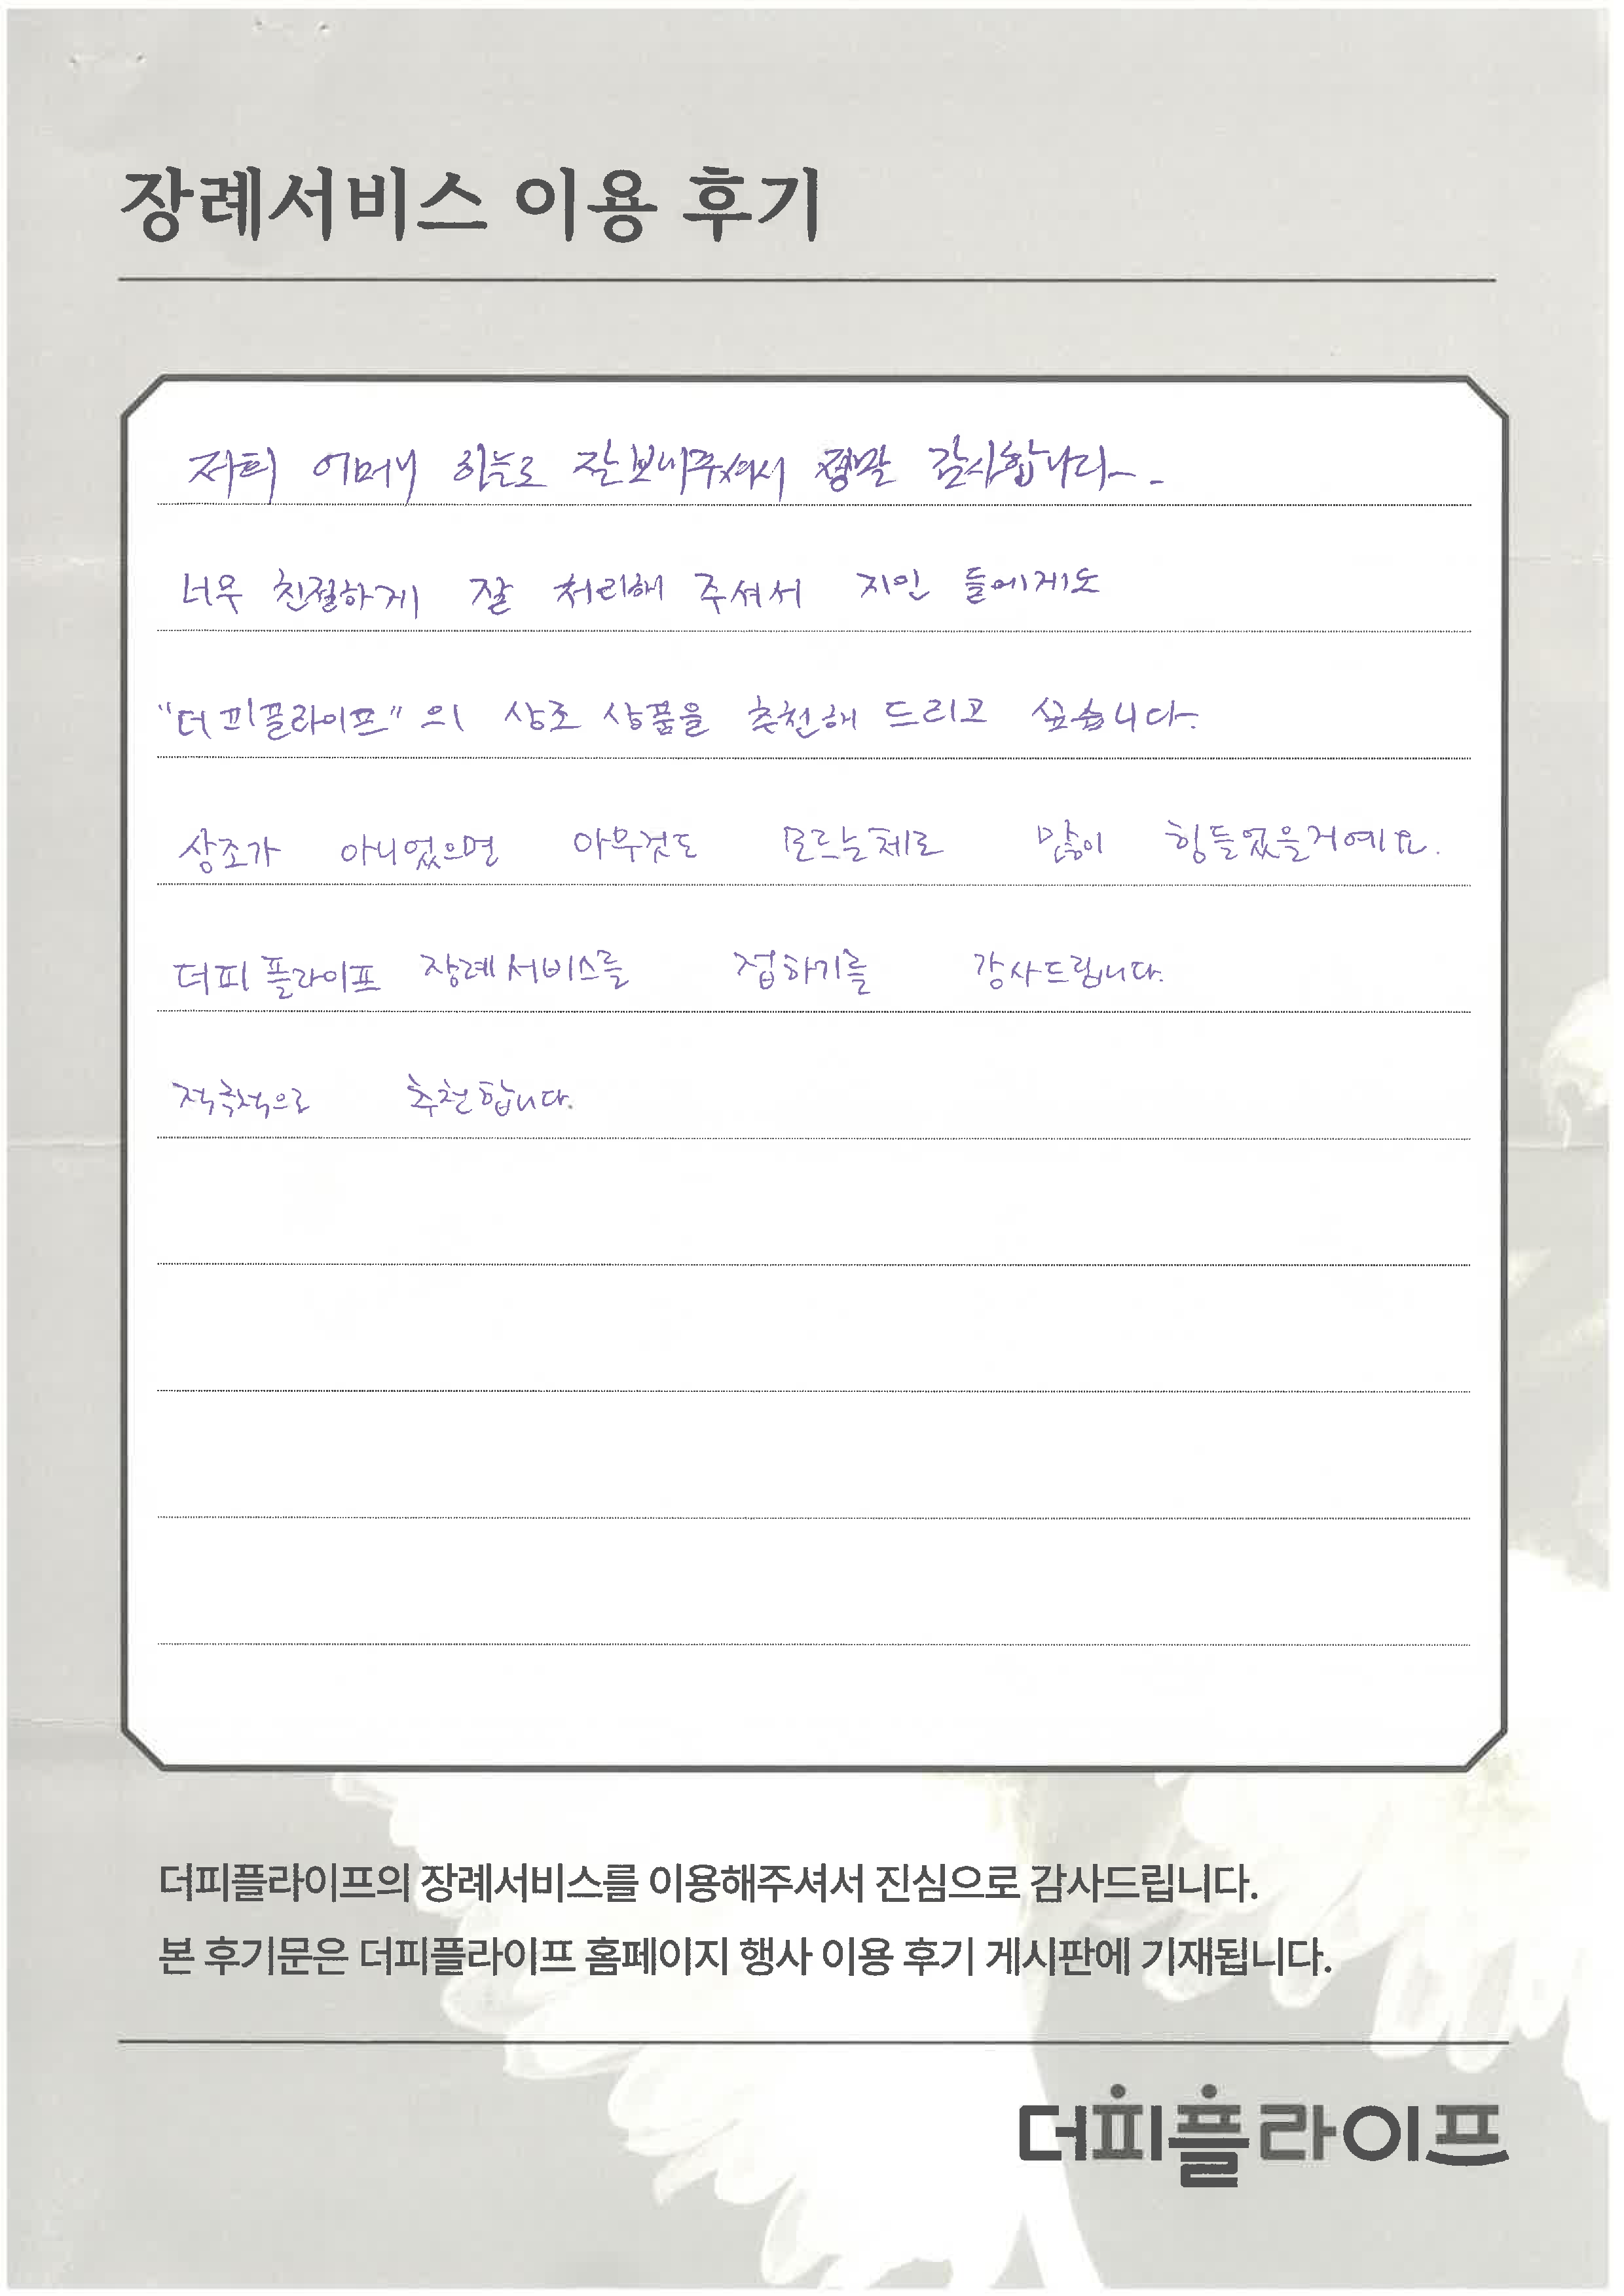 장례서비스 이용 후기
저희 어머니 하늘로 잘 보내주셔서 정말 감사합니다.
너무 친절하게 잘 처리해 주셔서 지인 들에게도
"더피플라이프"의 상조 상품을 추천해 드리고 싶습니다.
상조가 아니었으면 아무것도 모르는체로 많이 힘들었을거예요.
더피플라이프 장례서비스를 접하기를 감사드립니다.
적극적으로 추천합니다.
더피플라이프의 장례서비스를 이용해주셔서 진심으로 감사드립니다.
본 후기문은 더피플라이프 홈페이지 행사 이용 후기 게시판에 기재됩니다.
더피플라이프